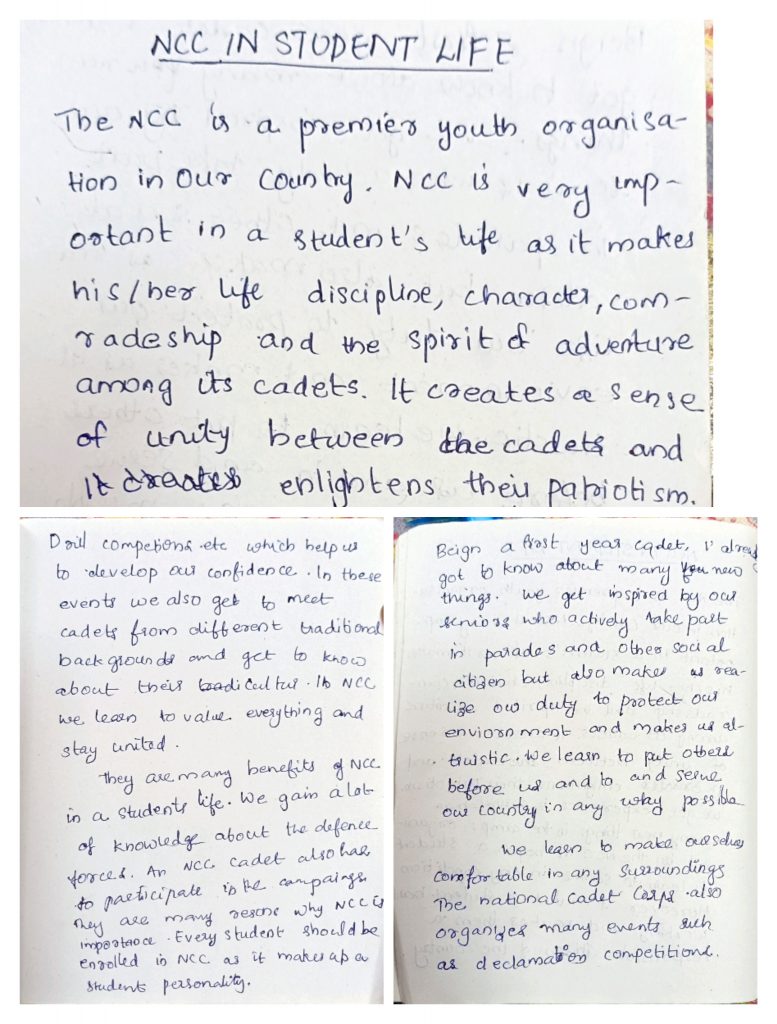 NCC IN STUDENT LIFE
The NCC is a premier youth organisa-
tion in Our Country. NCC is very imp-
ortant in a student's life as it makes
his/her life discipline, character, com-
radeship and the spirit of adventure
among its cadets. It creates a sense
of unity between the cadets and
It creates enlightens their patriotism.
Drill competions etc which help us
to develop our confidence. In these
events we also get to meet
cadets from different traditional
backgrounds and get to know
about their cultur. In NCC
we learn to value everything and
stay united.
They are many benefits of NCC
in a students life. We gain a lot
of knowledge about the defence
forces. An NCC cadet also has
to participate in the campaings
They are many resons why NCC is
importance. Every student should be
enrolled in NCC as it makes up a
students personality.
Beign a first year cadet, I alread
got to know about many new
things. We get inspired by our
seniors who actively take part
in parades and other social
citizen but also makes us rea-
lize our duty to protect our
enviornment and makes us al-
truistic. We learn to put others
before us and to and serve
our country in any why possible
We learn to make ourselves
comfortable in any surroundings
The national Cadet Corps also
organizes many events such
as declamation competitions.